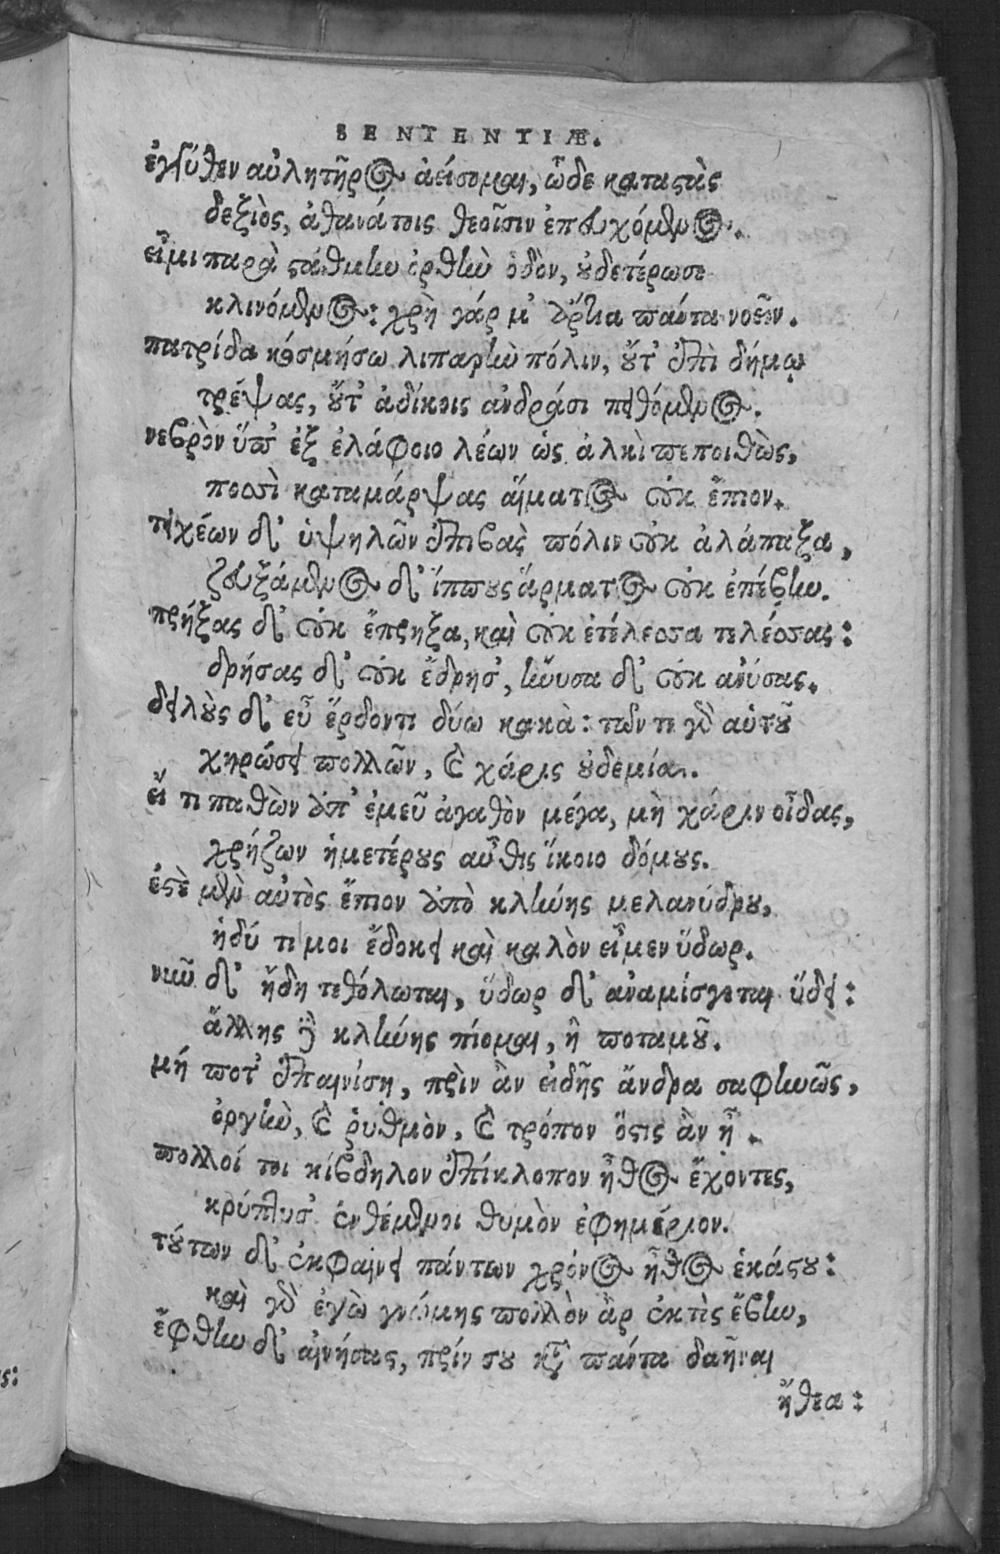 SENTENTIÆ.
ἐγγύθεν αὐλητῆρος ἀείσομαι, ὧδε καταστὰς
δεξιὸς, ἀθανάτοις θεοῖσιν ἐπευχόμενος.
εἶμι παρὰ στάθμην ὀρθὴν ὁδὸν, οὐδετέρωσε
κλινόμενος: χρὴ γάρ μ' ἄρτια πάντα νοεῖν.
πατρίδα κοσμήσω λιπαρὴν πόλιν, οὔτ' ἐπὶ δήμῳ
τρέψας, οὔτ' ἀδίκοις ἀνδράσι πειθόμενος.
νεβρὸν ὕπ' ἐξ ἐλάφοιο λέων ὡς ἀλκὶ πεποιθὼς,
ποσσὶ καταμάρψας αἵματος οὐκ ἔπιον.
τειχέων δ' ὑψηλῶν ἐπιβὰς πόλιν οὐκ ἀλάπαξα,
ζευξάμενος δ' ἵππους ἅρματος οὐκ ἐπέβην.
πρήξας δ' οὐκ ἔπρηξα, καὶ οὐκ ἐτέλεσσα τελέσσας:
δρήσας δ' οὐκ ἔδρησ', ἤνυσα δ' οὐκ ἀνύσας.
δειλοὺς δ' εὖ ἔρδοντι δύω κακὰ: τῶν τε γὰρ αὐτοῦ
χηρώσει πολλῶν, καὶ χάρις οὐδεμία.
εἴ τι παθὼν ἀπ' ἐμεῦ ἀγαθὸν μέγα, μὴ χάριν οἶδας,
χρήζων ἡμετέρους αὖθις ἵκοιο δόμους.
ἔστε μὲν αὐτὸς ἔπινον ἀπὸ κλήνης μελανύδρου,
ἡδύ τί μοι ἔδοκει καὶ καλὸν εἶμεν ὕδωρ.
νῦν δ' ἤδη τεθόλωται, ὕδωρ δ' ἀναμίσγεται ὕδει:
ἄλλης δὴ κλήνης πίομαι, ἢ ποταμοῦ.
μή ποτ' ἐπαινίσῃ, πρὶν ἂν εἰδῇς ἄνδρα σαφηνῶς,
ὀργὴν, καὶ ῥυθμὸν, καὶ τρόπον ὅστις ἂν ᾖ.
πολλοί τοι κίβδηλον ἐπίκλοπον ἦθος ἔχοντες,
κρύπτουσ' ἐνθέμενοι θυμὸν ἐφημέριον.
τούτων δ' ἐκφαίνει πάντων χρόνος ἦθος ἑκάστου:
καὶ γὰρ ἐγὼ γνώμης πολλὸν ἂρ ἐκτὸς ἔβην,
ἔφθην δ' αἰνήσας, πρίν σου κατὰ πάντα δαῆναι
ἤθεα: